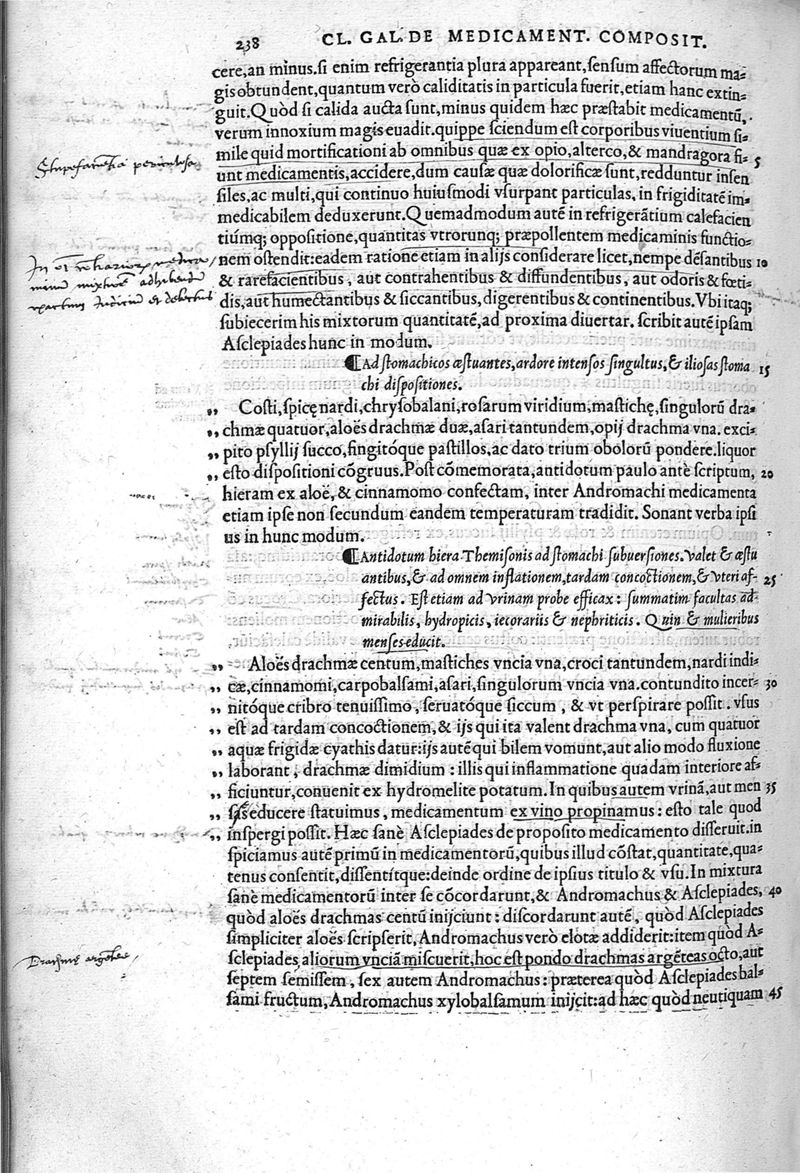 238 CL. GAL. DE MEDICAMENT. COMPOSIT.
cere,an minus.si enim refrigerantia plura appareant,sensum affectorum ma-
gis obtundent,quantum verò caliditatis in particula fuerit,etiam hanc extin-
guit.Quòd si calida aucta sunt,minus quidem hæc præstabit medicamentũ,
verum innoxium magis euadit.quippe sciendum est corporibus viuentium si-
Stupefacientia periculosa
mile quid mortificationi ab omnibus quæ ex opio,alterco,& mandragora fi- 5
unt medicamentis,accidere,dum causæ quæ dolorificæ sunt,redduntur insen
siles,ac multi,qui continuo huiusmodi vsurpant particulas,in frigiditatẽ im-
medicabilem deduxerunt.Quemadmodum autẽ in refrigerãtium calefacien
tiũmq; oppositione,quantitas vtrorunq; præpollentem medicaminis functio-
nem ostendit:eadem ratione etiam in alijs considerare licet,nempe dẽsantibus 10
& rarefacientibus, aut contrahentibus & diffundentibus, aut odoris & fœti-
dis,aut humectantibus & siccantibus,digerentibus & continentibus.Vbi itaq;
subiecerim his mixtorum quantitatẽ,ad proxima diuertar. scribit autẽ ipsam
Asclepiades hunc in modum.
¶Ad stomachicos æstuantes,ardore intensos singultus,& iliosas stoma 15
chi dispositiones.
„ Costi,spicę nardi,chrysobalani,rosarum viridium,mastichę,singulorũ dra-
„ chmæ quatuor,aloës drachmæ duæ,asari tantundem,opij drachma vna. exci-
„ pito psyllij succo,fingitóque pastillos,ac dato trium obolorũ pondere.liquor
„ esto dispositioni cõgruus.Post cõmemorata,antidotum paulo antè scriptum, 20
hieram ex aloë,& cinnamomo confectam, inter Andromachi medicamenta
etiam ipse non secundum eandem temperaturam tradidit. Sonant verba ipsi
us in hunc modum.
¶Antidotum hiera Themisonis ad stomachi subuersiones.Valet & æstu
antibus,& ad omnem inflationem,tardam concoctionem,& vteri af- 25
fectus. Est etiam ad vrinam probe efficax: summatim facultas ad-
mirabilis, hydropicis, iecorariis & nephriticis. Quin & mulieribus
menses educit.
„ Aloës drachmæ centum,mastiches vncia vna,croci tantundem,nardi indi-
„ cæ,cinnamomi,carpobalsami,asari,singulorum vncia vna.contundito incer- 30
„ nitóque cribro tenuissimo,seruatóque siccum, & vt perspirare possit. vsus
„ est ad tardam concoctionem,& ijs qui ita valent drachma vna, cum quatuor
„ aquæ frigidæ cyathis datur:ijs autẽ qui bilem vomunt,aut alio modo fluxione
„ laborant, drachmæ dimidium: illis qui inflammatione quadam interiore af-
„ ficiuntur,conuenit ex hydromelite potatum.In quibus autem vrinã,aut men 35
„ ses educere statuimus, medicamentum ex vino propinamus: esto tale quod
„ inspergi possit. Hæc sanè Asclepiades de proposito medicamento disseruit.in
spiciamus autẽ primũ in medicamentorũ,quibus illud cõstat,quantitate,qua-
tenus consentit,dissentítque:deinde ordine de ipsius titulo & vsu.In mixtura
sanè medicamentorũ inter se cõcordarunt,& Andromachus & Asclepiades, 40
quòd aloës drachmas centũ inijciunt: discordarunt autẽ, quòd Asclepiades
simpliciter aloës scripserit,Andromachus verò elotæ addiderit:item quòd A-
sclepiades aliorum vnciã miscuerit,hoc est pondo drachmas argẽteas octo,aut
septem semissem, sex autem Andromachus: præterea quòd Asclepiades bal-
sami fructum,Andromachus xylobalsamum inijcit:ad hæc quòd neutiquam 45